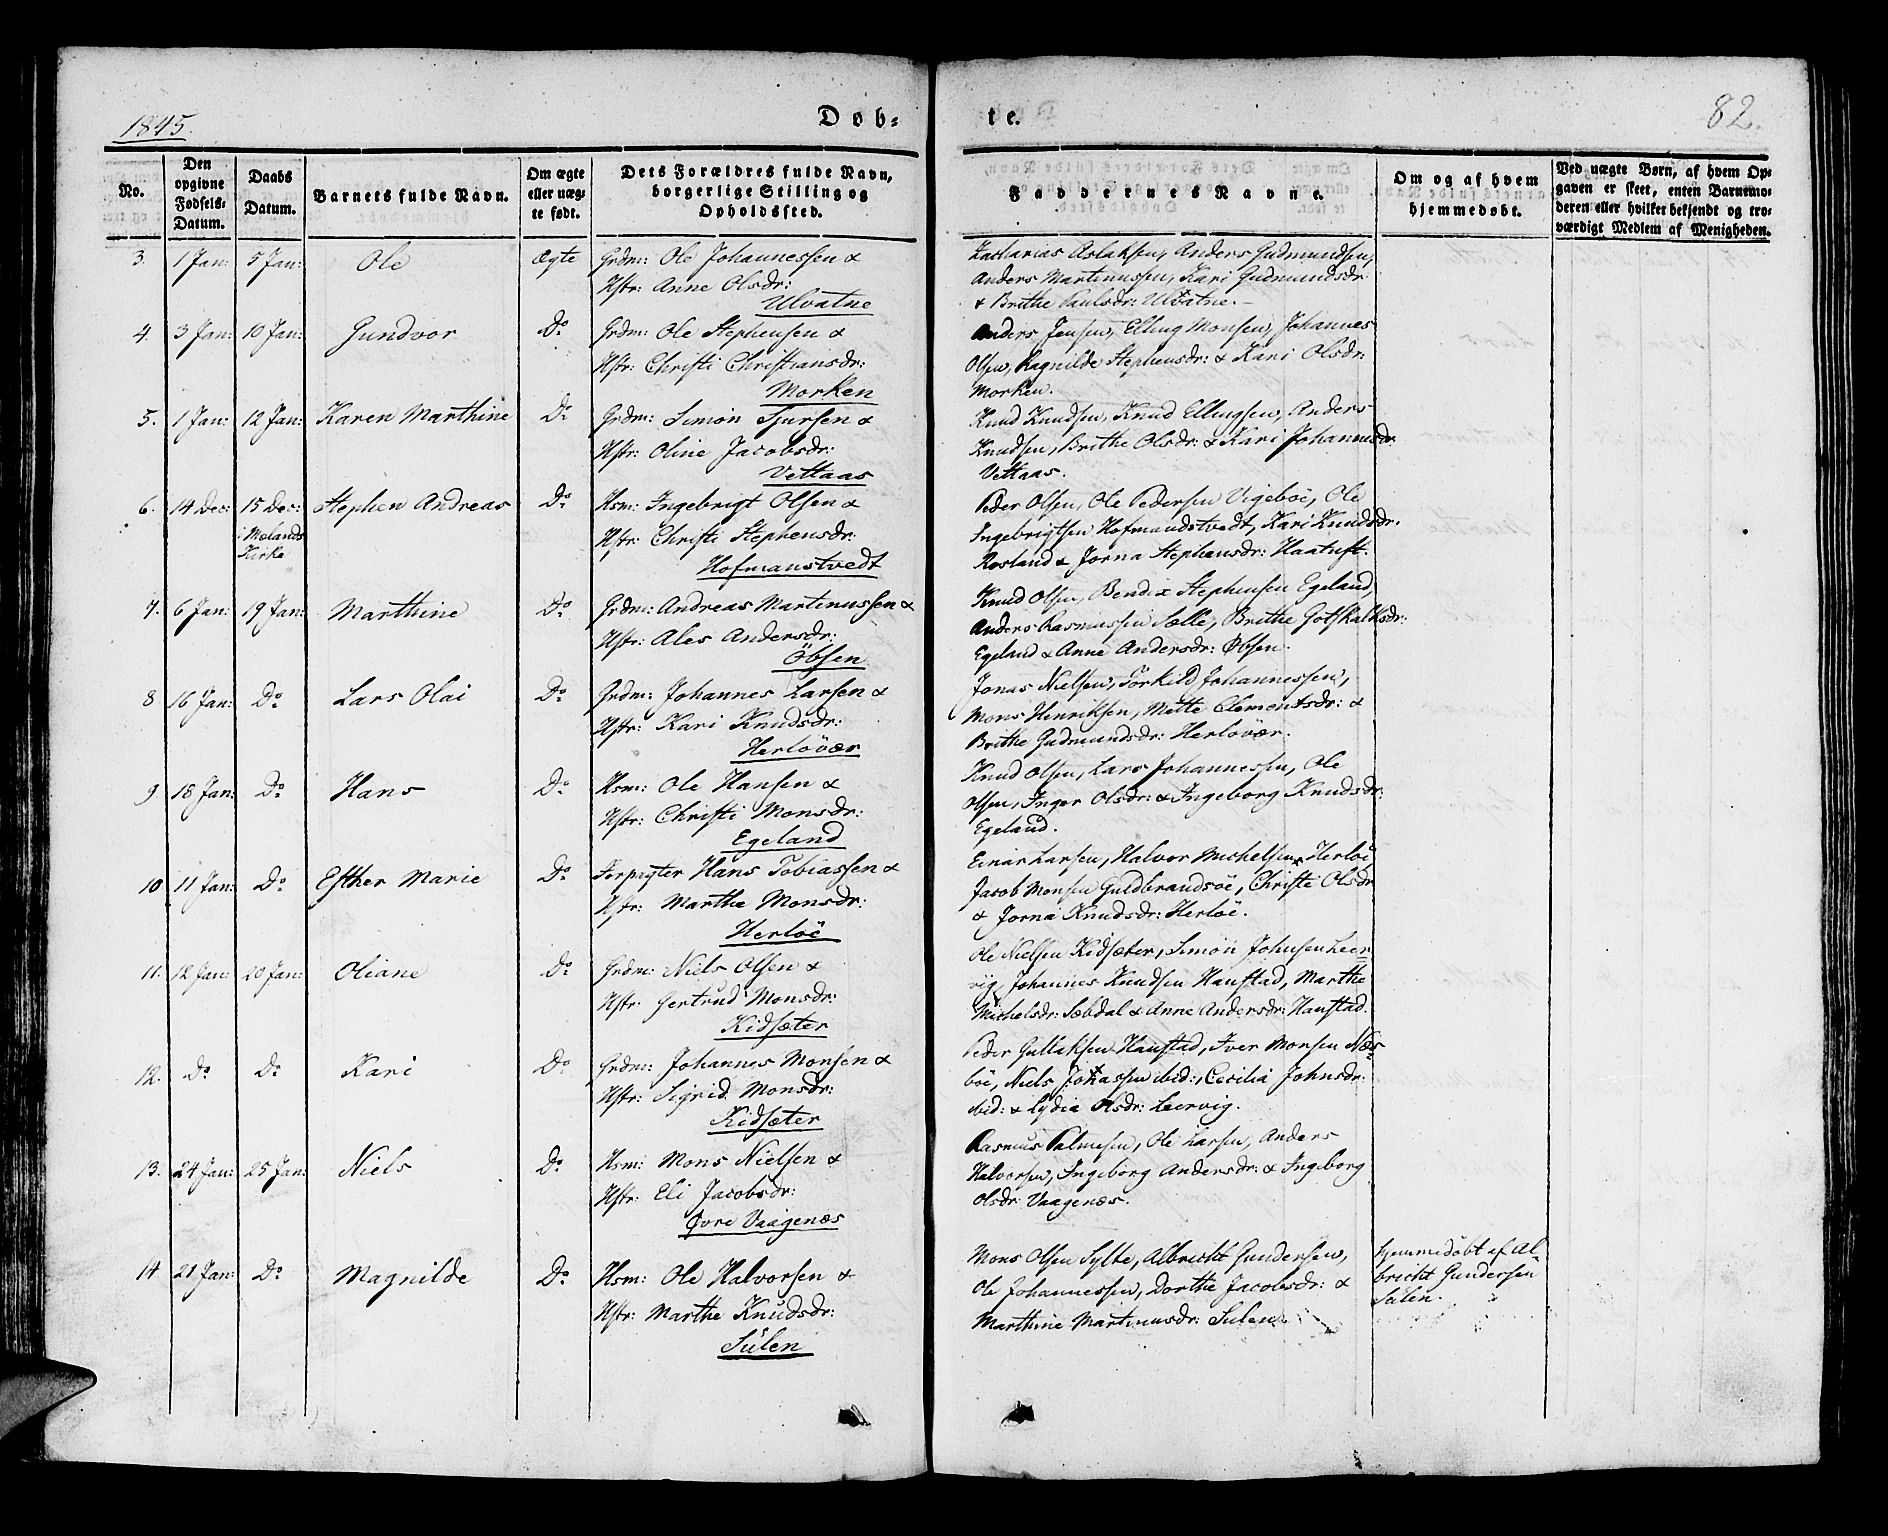 1845.
Døb-
te.
82.
No.
Den
opgivne
Fødsels-
Datum.
Daabs
Datum.
Barnets fulde Navn.
Om ægte
eller uæg-
te født.
Dets Forældres fulde Navn,
borgerlige Stilling og
Opholdssted.
Faddernes Navne.
Om og af hvem
hjemmedøbt.
Ved uægte Børn, af hvem Op-
gaven er skeet, enten Barnemo-
deren eller hvilket bekjendt og tro-
værdigt Medlem af Menigheden.
3. 1 Jan: 5 Jan: Ole ægte Grdm: Ole Johannessen &
Hstr: Anne Olsdr:
Ulvatne
Zacharias Aslaksen, Anders Gudmundsen,
Anders Martinussen, Kari Gudmundsdr
& Brithe Paulsdr: Ulvatne.
4. 3 Jan: 10 Jan: Gundvor Do Grdm: Ole Stephensen &
Hstr: Christi Christiansdr:
Morken
Anders Jensen, Elling Monsen, Johannes
Olsen, Ragnilde Stephensdr: & Kari Olsdr:
Morken.
5. 1 Jan: 12 Jan: Karen Marthine Do Grdm: Simon Sjursen &
Hstr: Oline Jacobsdr:
Vettaas
Knud Knudsen, Knud Ellingsen, Anders
Knudsen, Brithe Olsdr: & Kari Johannesdr:
Vettaas.
6. 14 Dec: 15 Dec: Stephen Andreas Do Hsm: Ingebrigt Olsen &
i Mælands
Kirke
Hstr: Christi Stephensdr:
Hofmanstvedt
Peder Olsen, Ole Pedersen Vigebøe, Ole
Ingebrigtsen Hofmandstvedt, Kari Knudsdr:
Rosland & Jorna Stephensdr: Haatuft.
7. 6 Jan: 19 Jan: Marthine Do Grdm: Andreas Martinussen &
Hstr: Ales Andersdr:
Øbsen
Knud Olsen, Bendix Stephensen Egeland,
Anders Rasmussen Sælle, Brithe Gotskalksdr:
Egeland & Anne Andersdr: Øbsen.
8 16 Jan: Do Lars Olai Do Grdm: Johannes Larsen &
Hstr: Kari Knudsdr:
Herløvær
Jonas Nielsen, Torkild Johannessen,
Mons Henriksen, Mette Clementsdr: &
Brithe Gudmundsdr: Herløvær.
9 18 Jan: Do Hans Do Hsm: Ole Hansen &
Hstr: Christi Monsdr:
Egeland
Knud Olsen, Lars Johannessen, Ole
Olsen, Inger Olsdr: & Ingeborg Knudsdr:
Egeland.
10 11 Jan: Do Esther Marie Do Forpagter Hans Tobiassen &
Hstr: Marthe Monsdr:
Herløe
Einar Larsen, Halvor Michelsen Herløe,
Jacob Monsen Guldbrandsøe, Christi Olsdr
& Jorna Knudsdr: Herløe.
11. 12 Jan: 20 Jan: Oliane Do Grdm: Niels Olsen &
Hstr: Gertrud Monsdr:
Kidsæter
Ole Nielsen Kidsæter, Simon Johnsen Leer-
vig, Johannes Knudsen Hanstad, Marthe
Michelsdr: Sæbdal & Anne Andersdr: Hanstad.
12. Do Do Kari Do Grdm: Johannes Monsen &
Hstr: Sigrid Monsdr:
Kidsæter
Peder Gullaksen Hanstad, Iver Monsen Næs-
bøe, Niels Johassen ibid:, Cecilia Johnsdr:
ibid: & Lydia Olsdr: Leervig.
13. 24 Jan: 25 Jan: Niels Do Hsm: Mons Nielsen &
Hstr: Eli Jacobsdr:
Øvre Vaagenæs
Rasmus Palmesen, Ole Larsen, Anders
Halvorsen, Ingeborg Andersdr: & Ingeborg
Olsdr: Vaagenæs.
14 21 Jan: Do Magnilde Do Hsm: Ole Halvorsen &
Hstr: Marthe Knudsdr:
Sulen
Mons Olsen Sylte, Albricht Gundersen,
Ole Johannessen, Dorthe Jacobsdr: &
Marthine Martinusdr: Sulen.
hjemmedøbt af Al-
bricht Gundersen
Sulen.